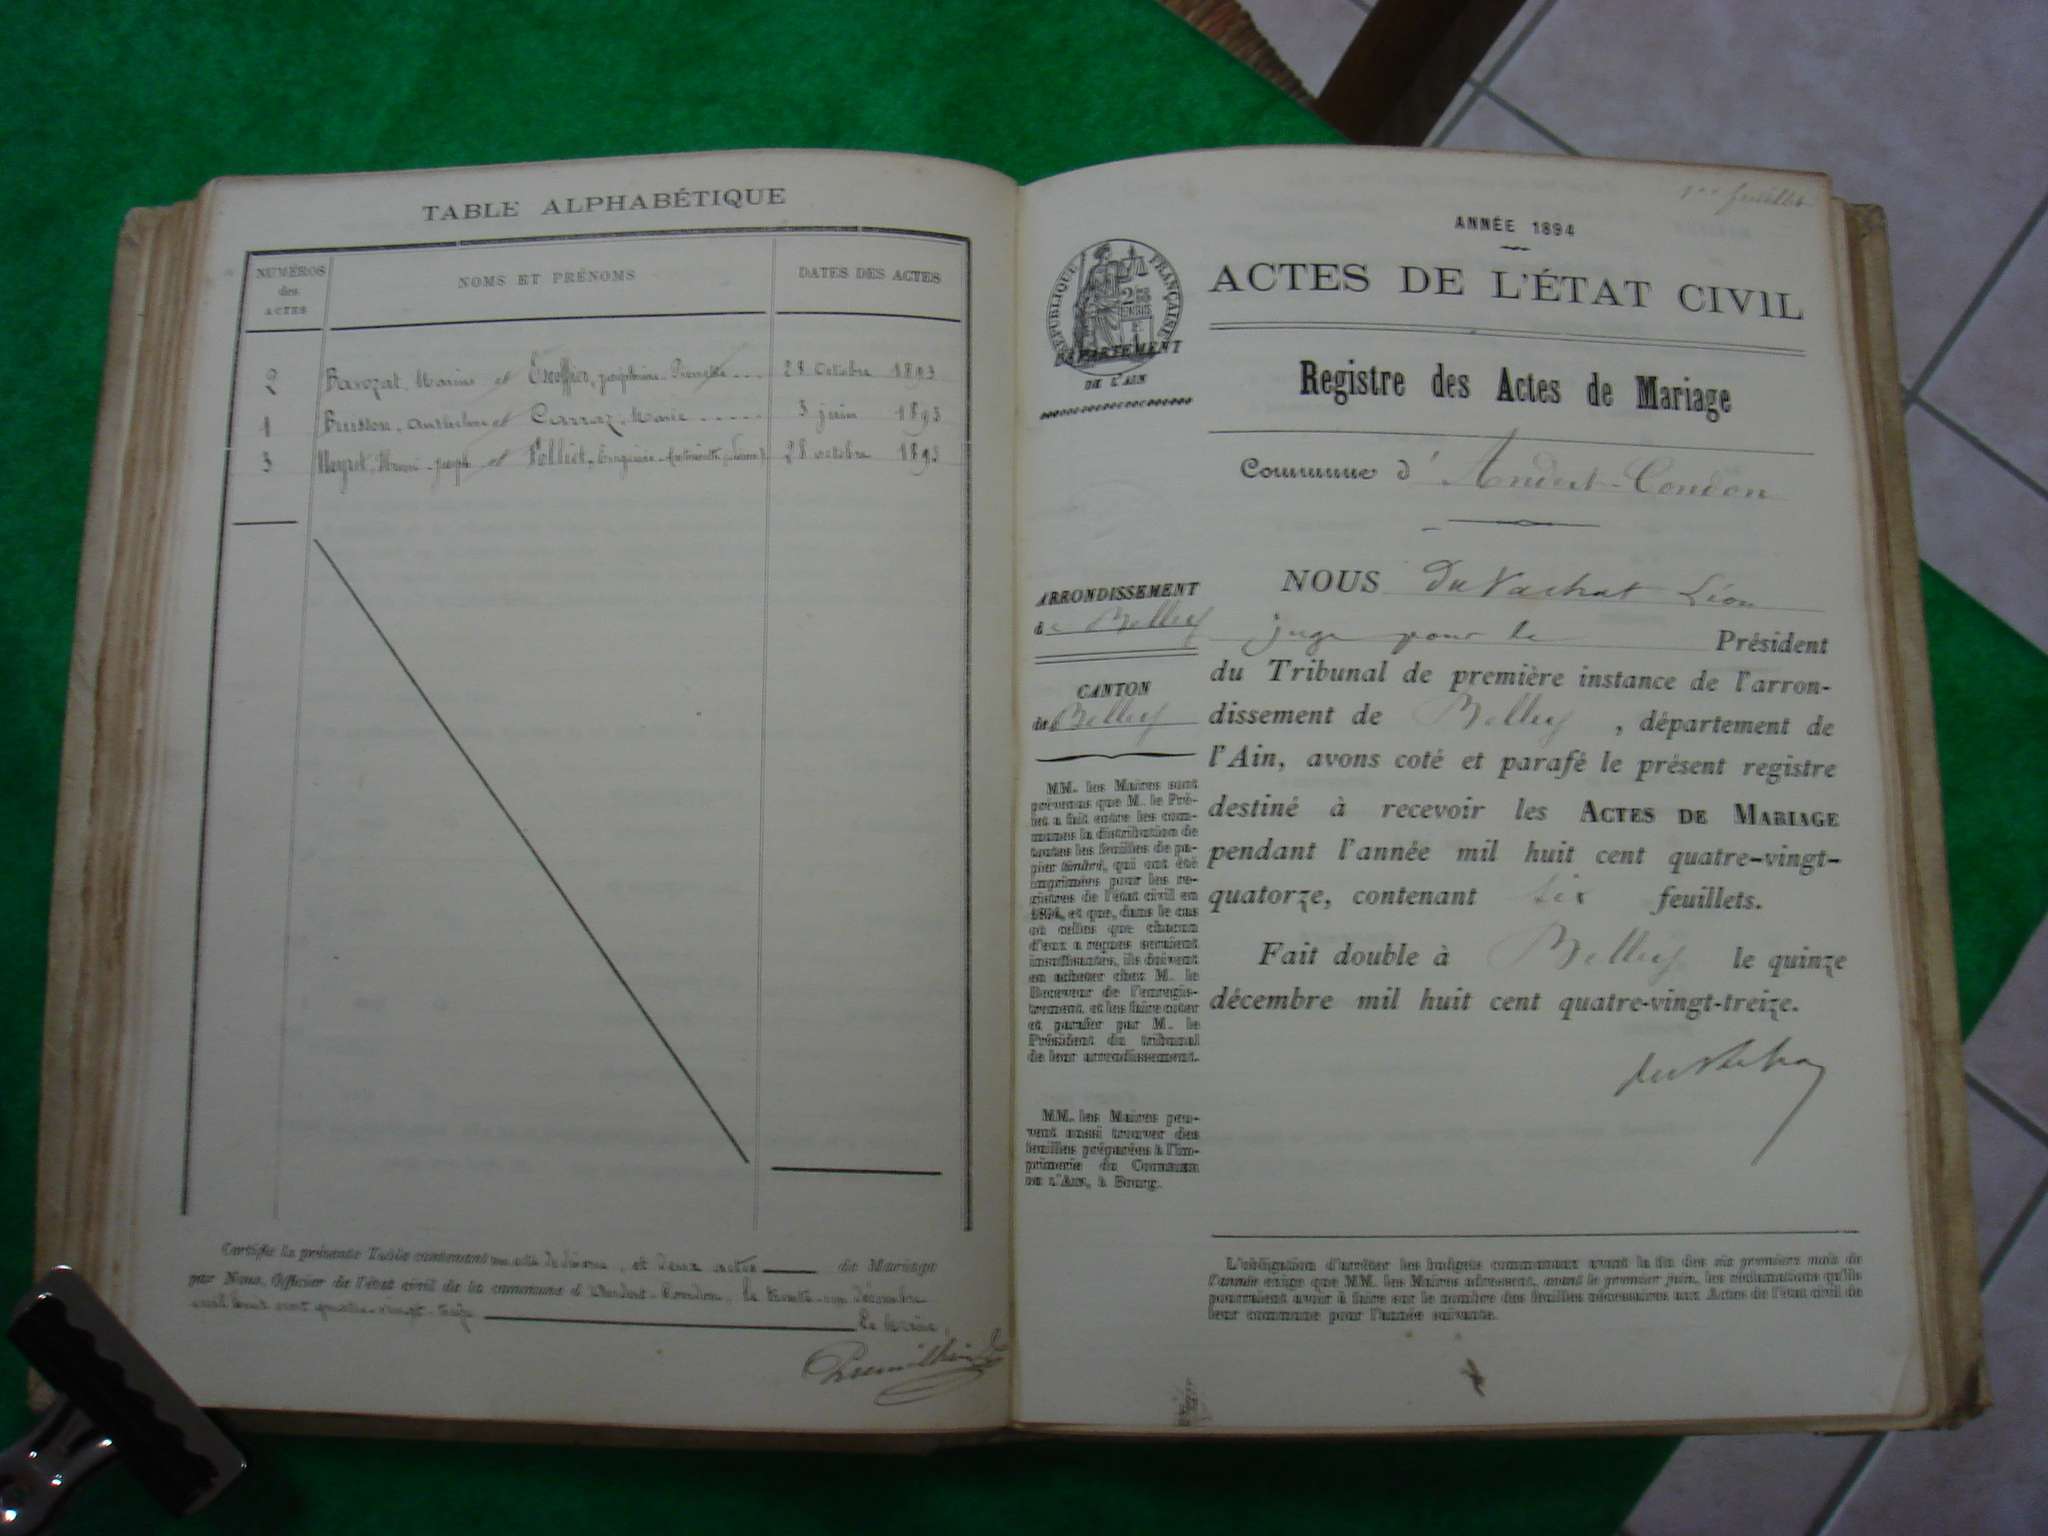 TABLE ALPHABÉTIQUE
NUMÉROS des ACTES
NOMS ET PRÉNOMS
DATES DES ACTES
2 Barozat, Marius et Escoffier, 28 Octobre 1893
1 Buisson, Anthelme et Carraz, Marie 3 juin 1893
3 Neyret, joseph et Folliet, Eugénie 28 octobre 1893
Certifié la présente Table contenant un acte de divorce, et deux actes de Mariage
par Nous, Officier de l'état civil de la commune d'Andert-Condon, le trente-un décembre
mil huit cent quatre-vingt-treize
Le Maire,
1er feuillet
ANNÉE 1894
RÉPUBLIQUE FRANÇAISE
ACTES DE L'ÉTAT CIVIL
DÉPARTEMENT
DE L'AIN
Registre des Actes de Mariage
Commune d'Andert-Condon
ARRONDISSEMENT
de Belley
CANTON
de Belley
MM. les Maires sont
prévenus que M. le Pré-
fet a fait entre les com-
munes la distribution de
toutes les feuilles de pa-
pier timbré, qui ont été
imprimées pour les re-
gistres de l'état civil en
1894, et que, dans le cas
où celles que chacun
d'eux a reçues seraient
insuffisantes, ils doivent
en acheter chez M. le
Receveur de l'enregis-
trement, et les faire coter
et parafer par M. le
Président du tribunal
de leur arrondissement.
MM. les Maires peu-
vent aussi trouver des
feuilles préparées à l'im-
primerie du COURRIER
DE L'AIN, à Bourg.
NOUS du Vachat Léon
juge pour le Président
du Tribunal de première instance de l'arron-
dissement de Belley, département de
l'Ain, avons coté et parafé le présent registre
destiné à recevoir les ACTES DE MARIAGE
pendant l'année mil huit cent quatre-vingt-
quatorze, contenant six feuillets.
Fait double à Belley le quinze
décembre mil huit cent quatre-vingt-treize.
du Vachat
L'obligation d'arrêter les budgets communaux avant la fin des six premiers mois de
l'année exige que MM. les Maires adressent, avant le premier juin, les réclamations qu'ils
pourraient avoir à faire sur le nombre des feuilles nécessaires aux Actes de l'état civil de
leur commune pour l'année suivante.